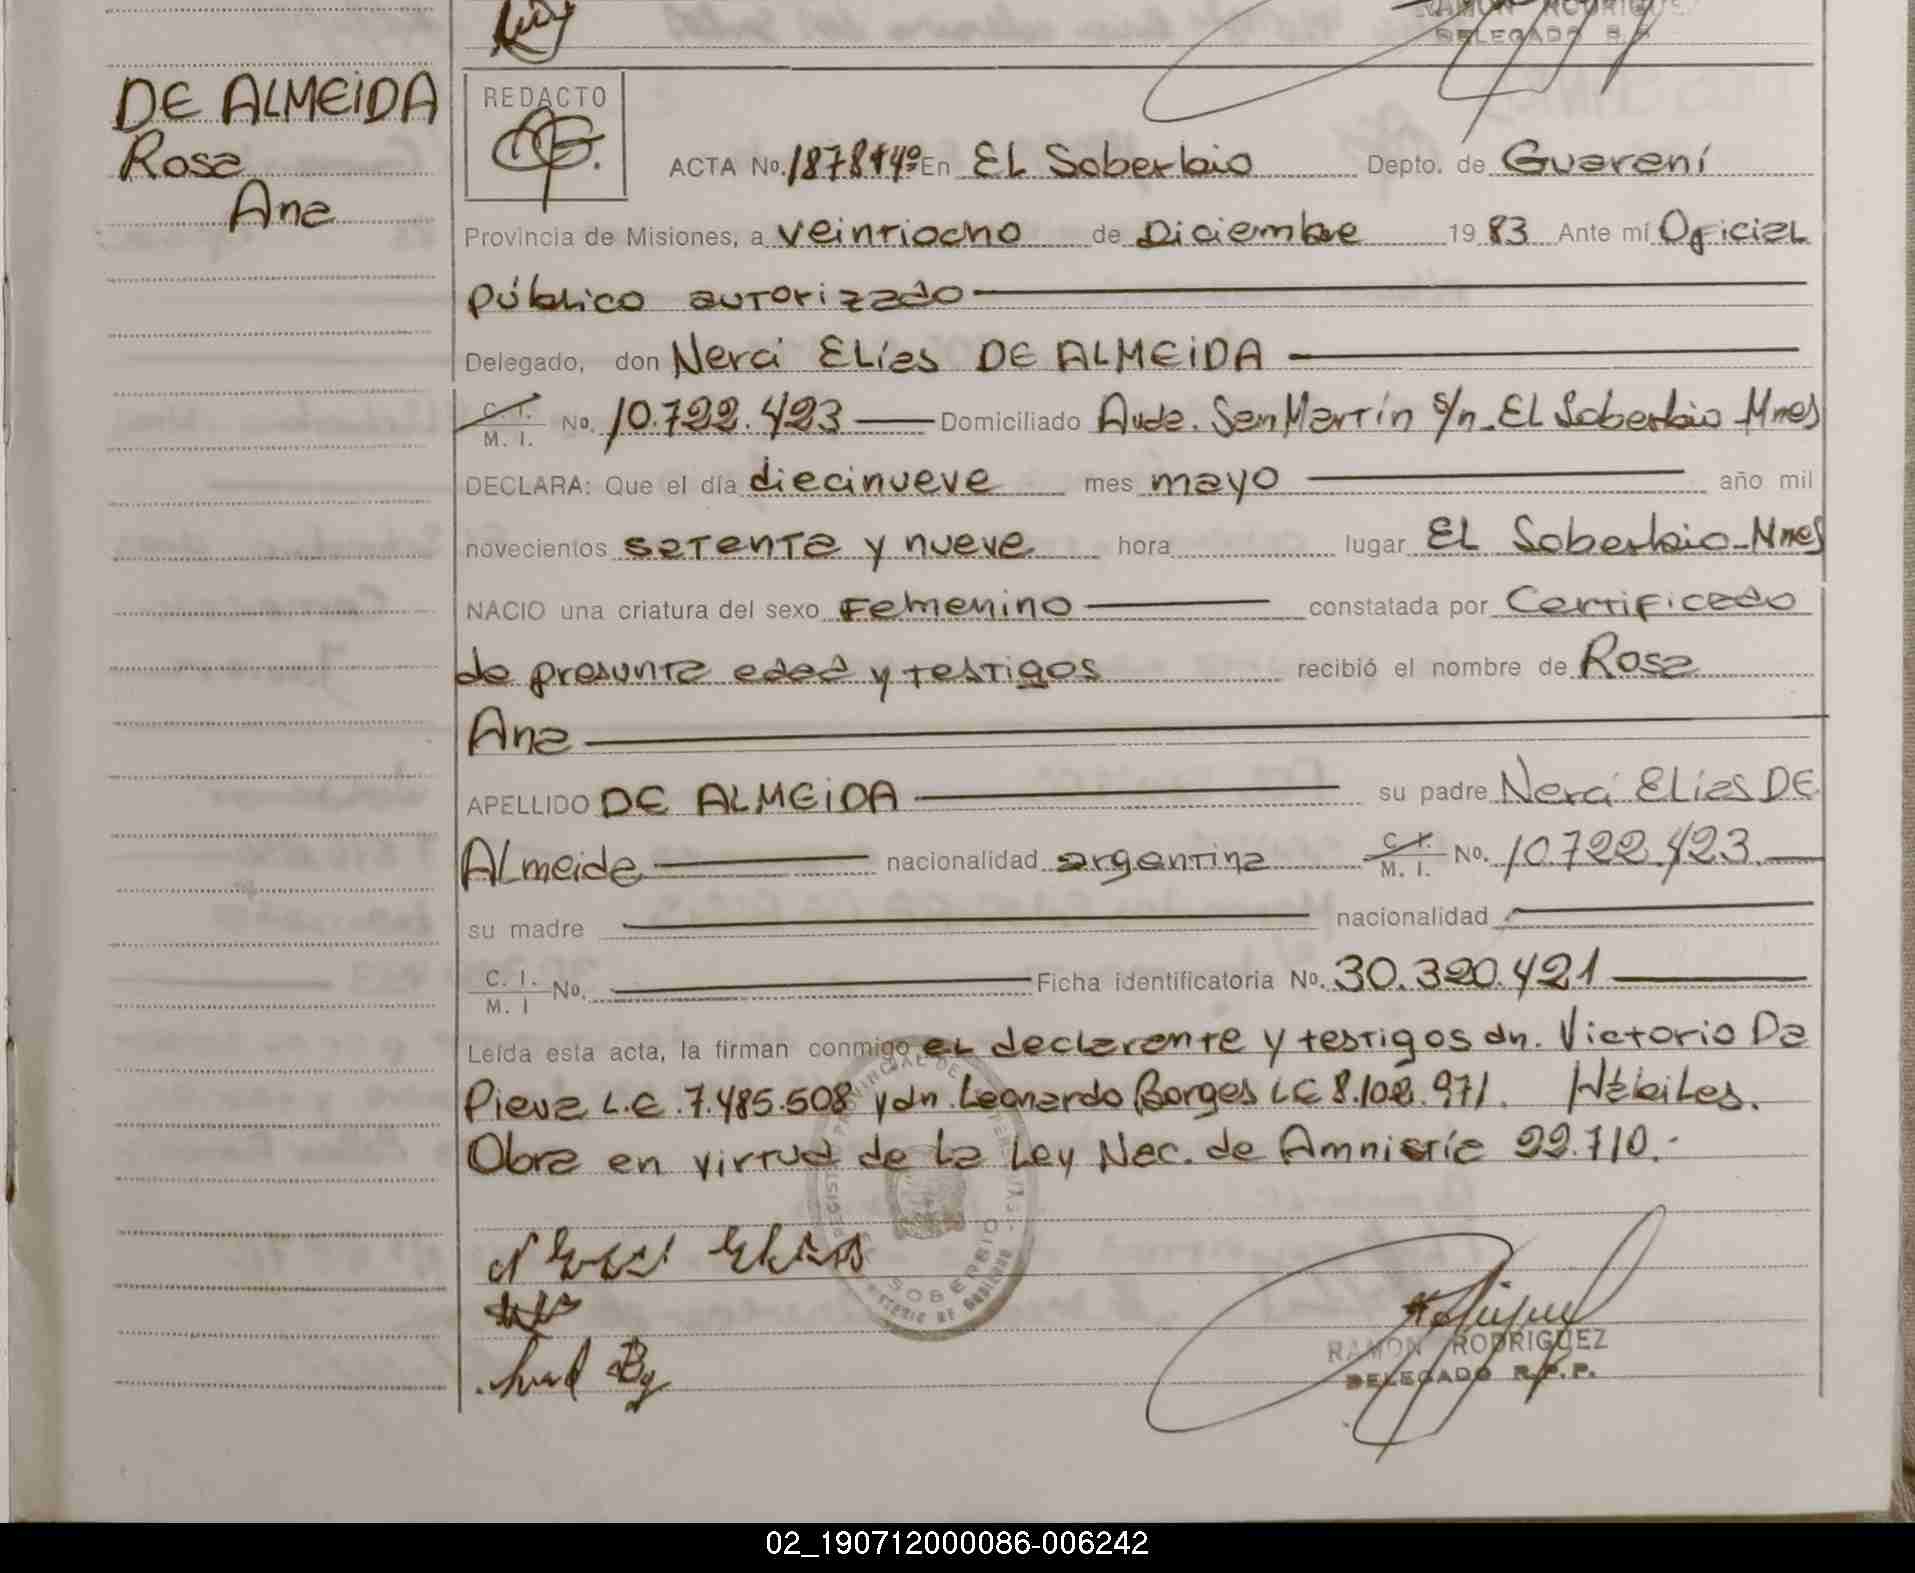 RAMON RODRIGUEZ
DELEGADO R.P.
DE ALMEIDA
Rosa
Ana
REDACTO
ACTA No. 1878 T4º En El Soberbio Depto. de Guaraní
Provincia de Misiones, a veintiocho de Diciembre 1983 Ante mí Oficial
público autorizado
Delegado, don Nerci Elías DE ALMEIDA
C. I. M. I. No. 10.722.423 Domiciliado Avda. San Martín s/n - El Soberbio Mnes
DECLARA: Que el día diecinueve mes mayo año mil
novecientos setenta y nueve hora lugar El Soberbio - Mnes
NACIO una criatura del sexo Femenino constatada por Certificado
de presunta edad y testigos recibió el nombre de Rosa
Ana
APELLIDO DE ALMEIDA su padre Nerci Elías DE
Almeida nacionalidad argentina C. I. M. I. No. 10.722.423
su madre nacionalidad
C. I. M. I No. Ficha identificatoria No. 30.320.421
Leída esta acta, la firman conmigo el declarante y testigos dn. Victorio Da
Pieva L.E. 7.485.508 y dn. Leonardo Borges LE 8.108.971. Hábiles.
Obra en virtud de la Ley Nac. de Amnistía 22.710.-
Nerci Elias
SOBERBIO
RAMON RODRIGUEZ
DELEGADO R.P.P.
02_190712000086-006242